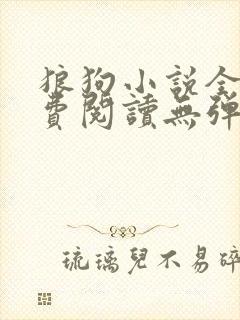 狼狗小說全
費閱讀無彈
琉璃兒不易碎